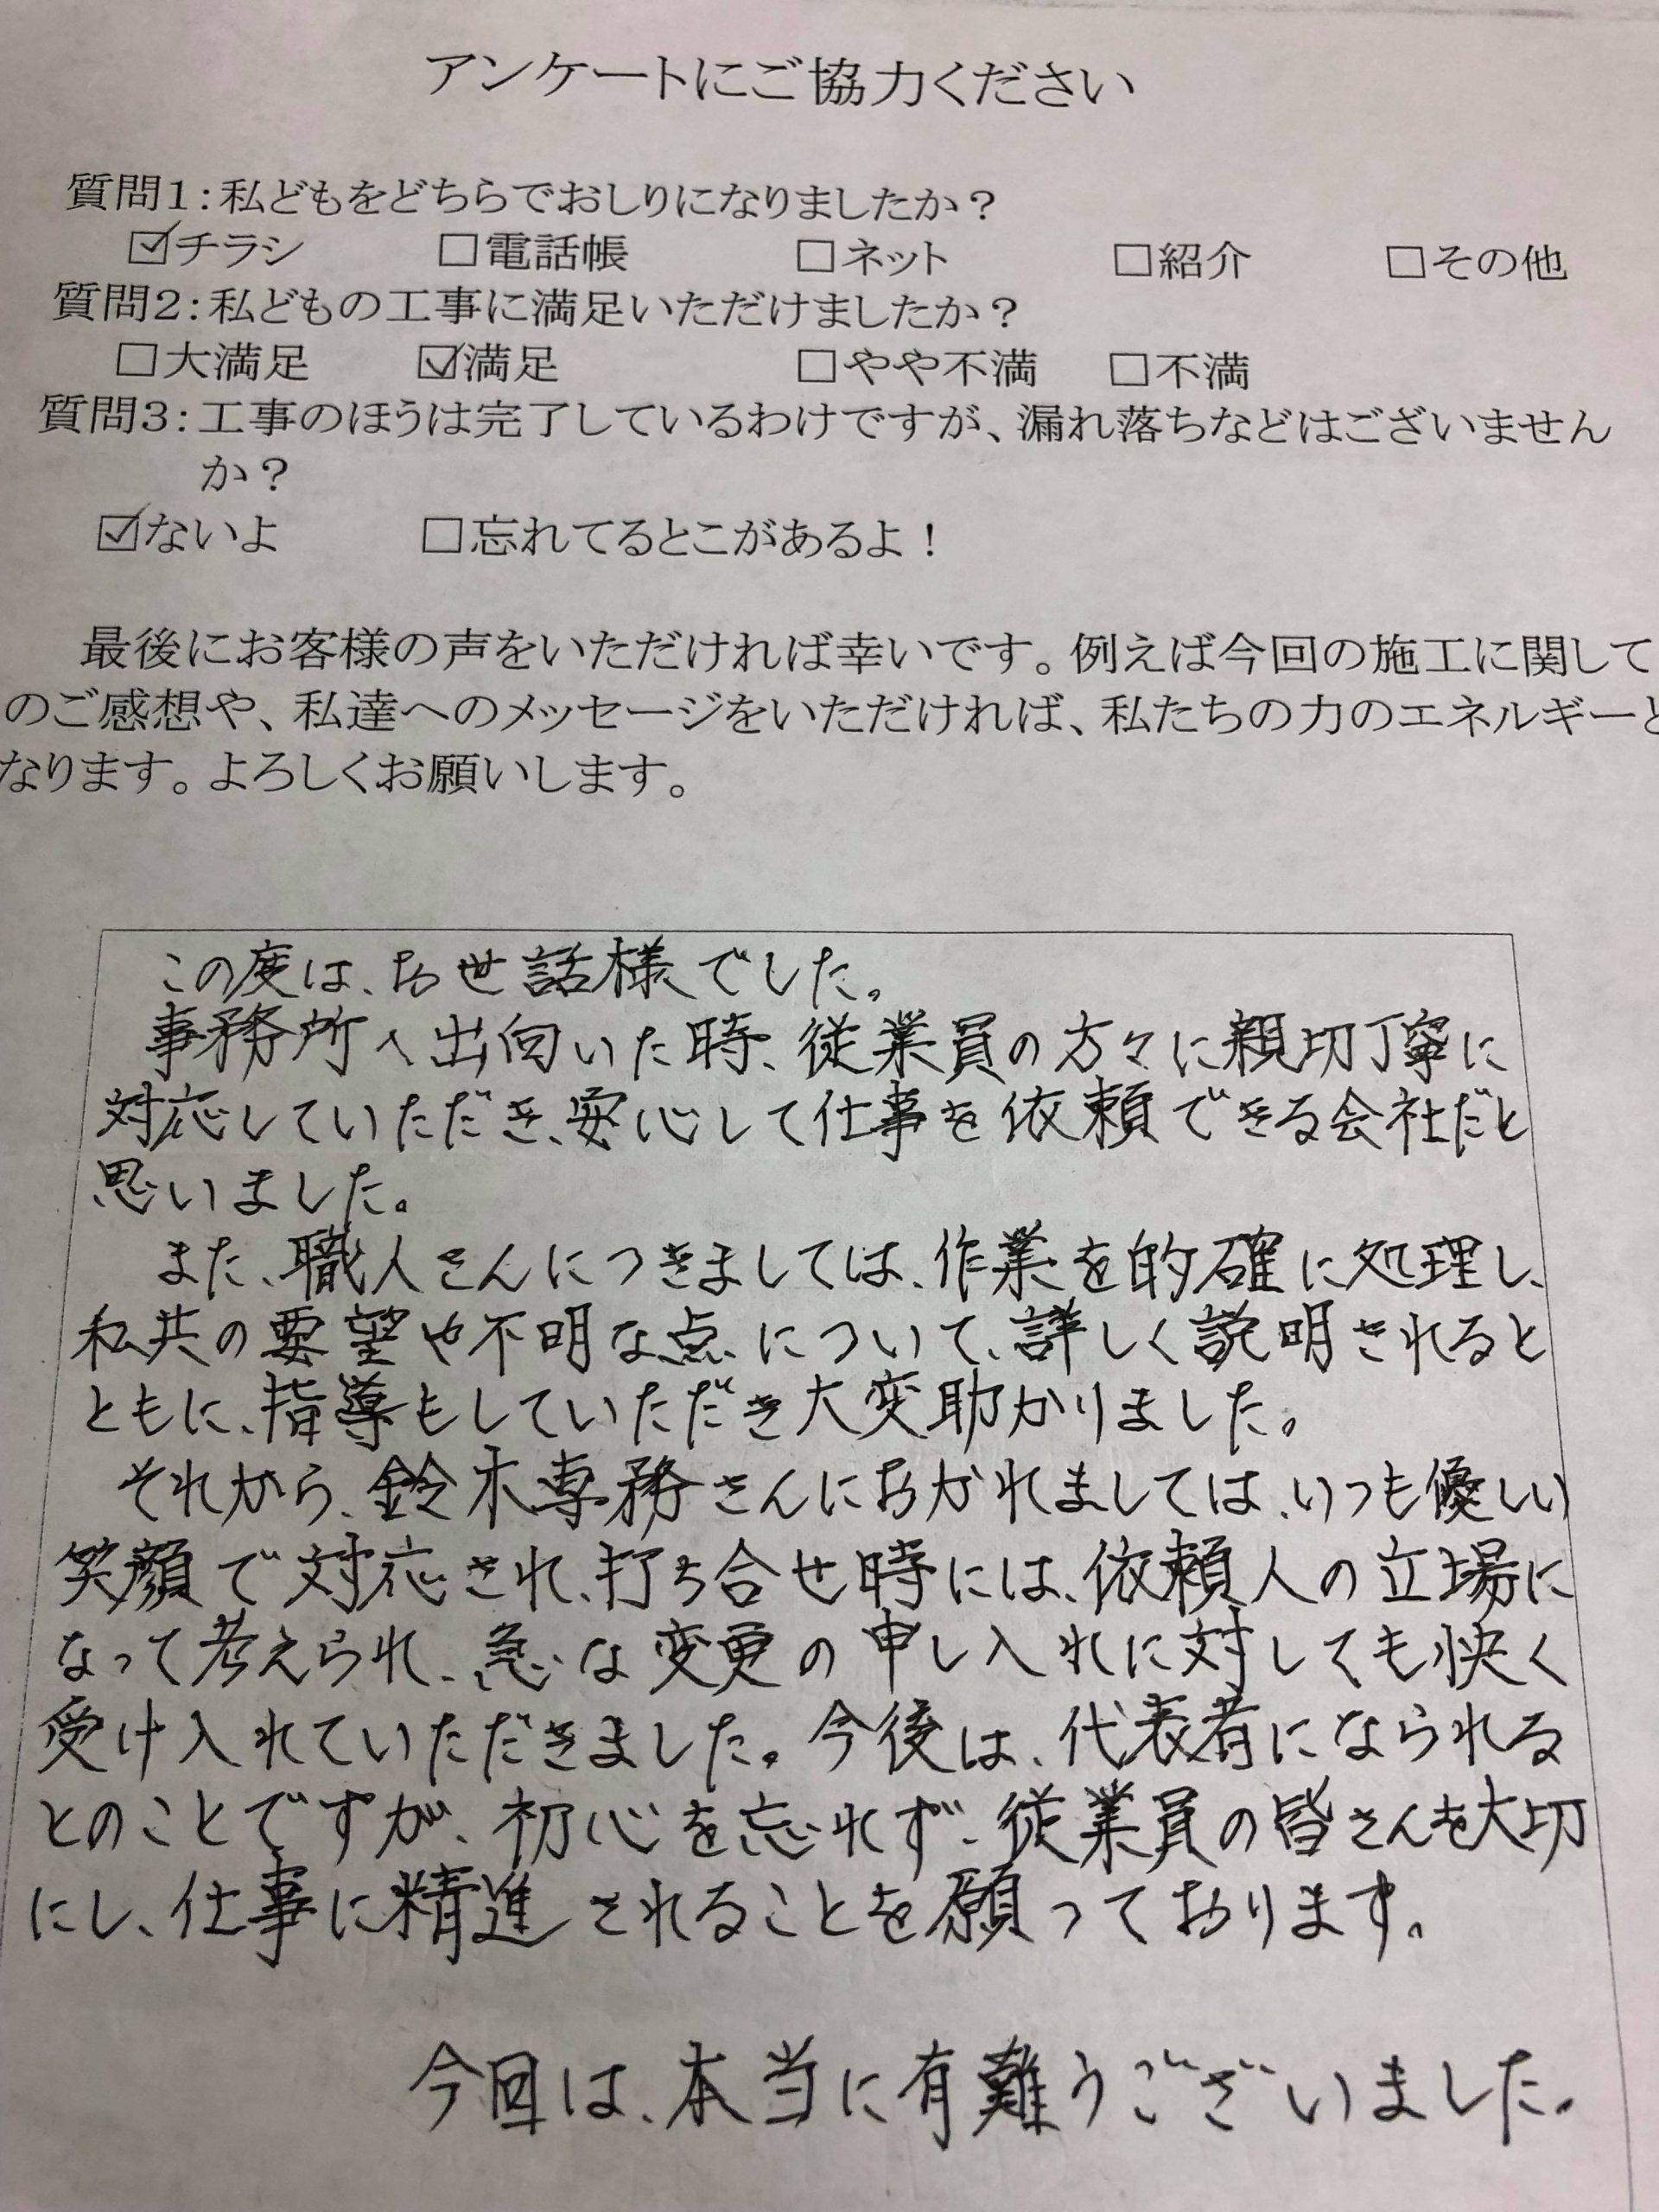 アンケートにご協力ください
質問1:私どもをどちらでおしりになりましたか?
☑チラシ □電話帳 □ネット □紹介 □その他
質問2:私どもの工事に満足いただけましたか?
□大満足 ☑満足 □やや不満 □不満
質問3:工事のほうは完了しているわけですが、漏れ落ちなどはございません
か?
☑ないよ □忘れてるとこがあるよ!
最後にお客様の声をいただければ幸いです。例えば今回の施工に関して
のご感想や、私達へのメッセージをいただければ、私たちの力のエネルギーと
なります。よろしくお願いします。
この度は、お世話様でした。
事務所へ出向いた時、従業員の方々に親切丁寧に
対応していただき、安心して仕事を依頼できる会社だと
思いました。
また、職人さんにつきましては、作業を的確に処理し、
私共の要望や不明な点について、詳しく説明されると
ともに、指導もしていただき大変助かりました。
それから、鈴木専務さんにおかれましては、いつも優しい
笑顔で対応され、打ち合せ時には、依頼人の立場に
なって考えられ、急な変更の申し入れに対しても快く
受け入れていただきました。今後は、代表者になられる
とのことですが、初心を忘れず、従業員の皆さんを大切
にし、仕事に精進されることを願っております。
今回は、本当に有難うございました。